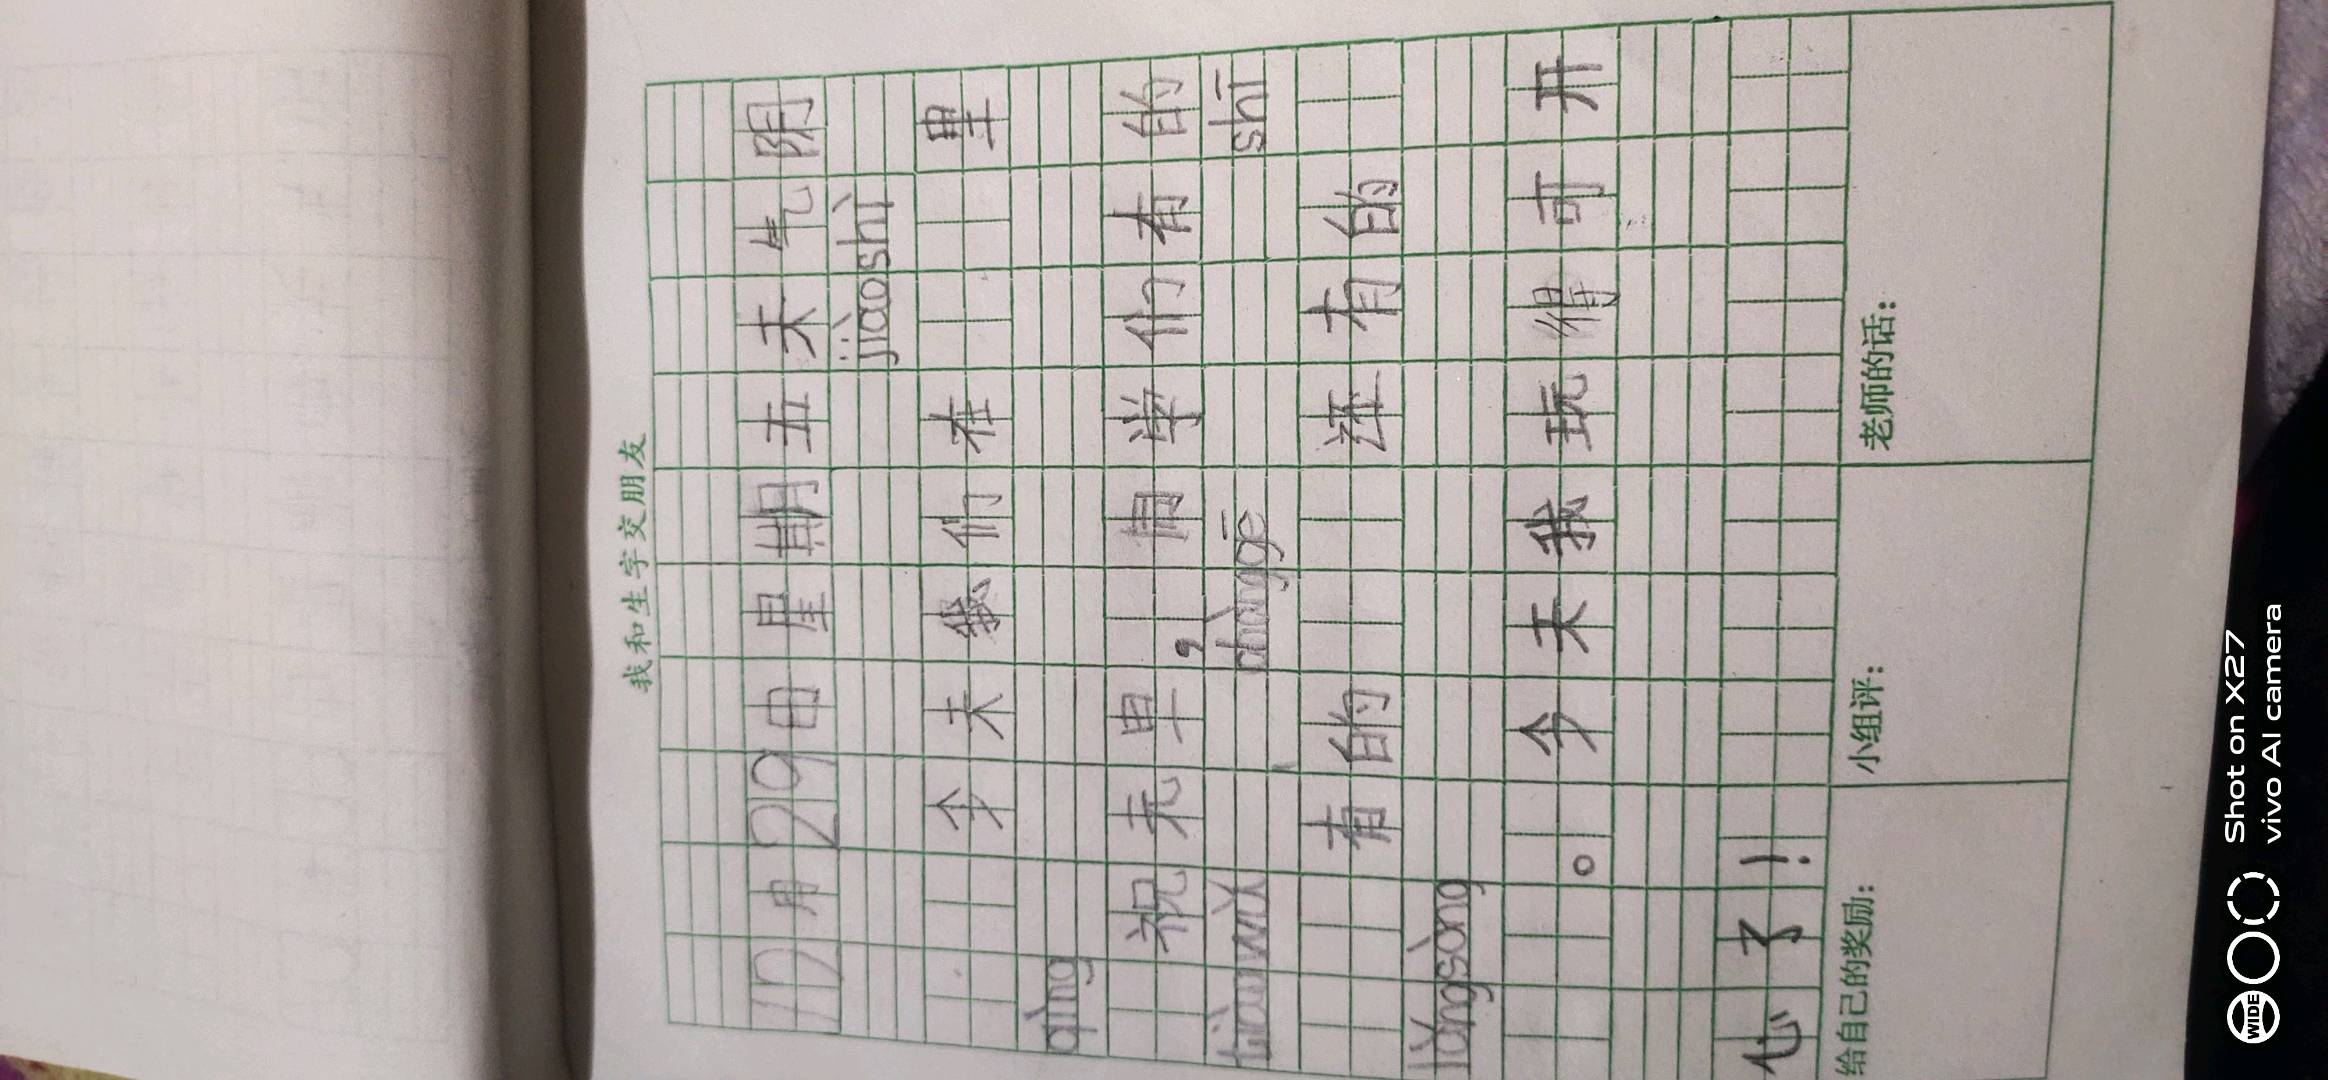 我和生字交朋友
12月29日星期五天气阴
jiàoshì
今天我们在里
qìng
祝元旦，同学们有的
tiàowǔ chànggē shī
有的还有的
lǎngsòng
。今天我玩得可开
心了！
给自己的奖励：
小组评：
老师的话：
Shot on X27
vivo AI camera
WIDE